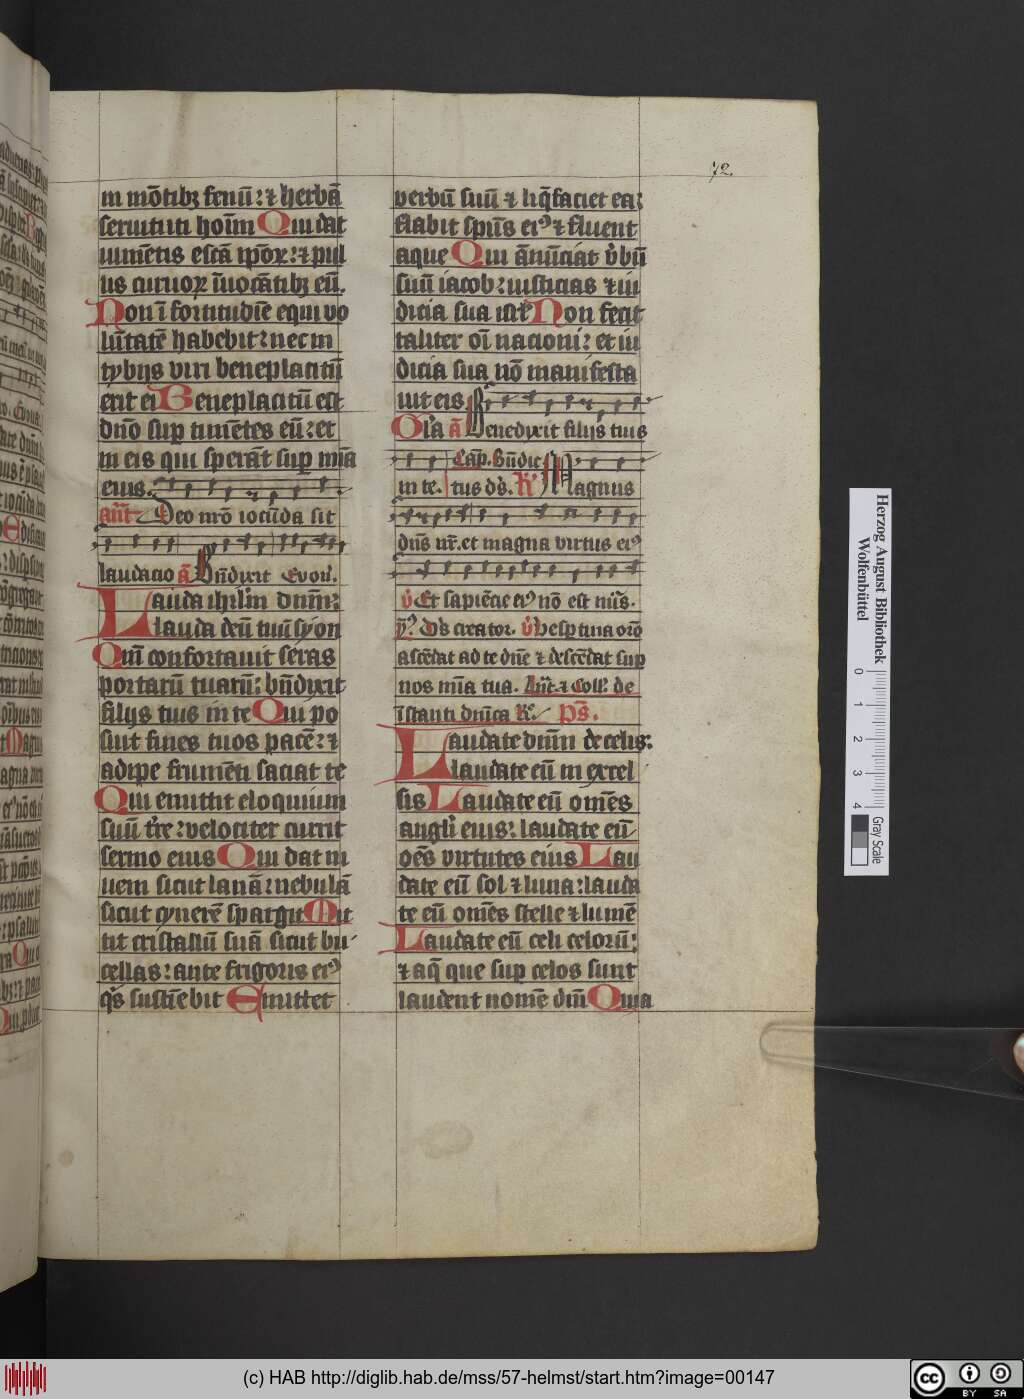 72.
in mōtibꝫ fenū: ⁊ herbā
seruituti hoīm Qui dat
iumētis escā ipōꝝ: ⁊ pul
us coruoꝝ īuocātibꝫ eū.
Non ī fortitudīe equi uo
lūtatē habebit: nec in
tybijs viri beneplacitū
erit ei Beneplacitū est
dn̄o sup timētes eū: et
in eis qui sperāt sup mīa
eius.
an̄t Deo nr̄o iocūda sit
laudatio ā Bn̄dixit Evou.
Lauda ihrl̄m dn̄m:
lauda deū tuū syon
Qm̄ confortauit seras
portarū tuarū: bn̄dixit
filijs tuis in te Qui po
suit fines tuos pacē: ⁊
adipe frumēti saciat te
Qui emittit eloquium
suū t're: velociter currit
sermo eius Qui dat ni
uem sicut lanā: nebulā
sicut cynerē spargit Mit
tit cristallū suā sicut bu
cellas: ante frigoris eiꝰ
qͥs sustīebit Emittet
verbū suū ⁊ liq̄faciet ea:
flabit spūs eiꝰ ⁊ fluent
aque Qui ānūciat v'bū
suū iacob: iusticias ⁊ iu
dicia sua isrl̄ Non fecit
taliter oī nacioni: et iu
dicia sua nō manifesta
uit eis
Gl'a ā Benedixit filijs tuis
in te. Cap̄. Bn̄dic
tus ds̄. R' Magnus
dn̄s nr̄. et magna virtus eiꝰ
v' Et sapiēcie eiꝰ nō est nūs.
ds̄ creator. v' Vesptina orō
ascēdat ad te dn̄e ⁊ descēdat sup
nos mīa tua. An̄t. ⁊ Coll'. de
īstanti dn̄ica R'. Ps̄.
Laudate dn̄m de celis:
laudate eū in excel
sis Laudate eū omēs
angl'i eius: laudate eū
oēs virtutes eius Lau
date eū sol ⁊ luna: lauda
te eū omēs stelle ⁊ lumē
Laudate eū celi celorū:
⁊ aq̄ que sup celos sunt
laudent nomē dn̄i Quia
Herzog August Bibliothek
Wolfenbüttel
0 1 2 3 4
Gray Scale
(c) HAB http://diglib.hab.de/mss/57-helmst/start.htm?image=00147
cc BY SA